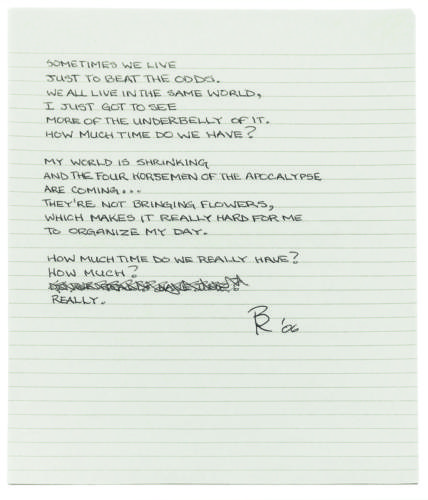 SOMETIMES WE LIVE
JUST TO BEAT THE ODDS.
WE ALL LIVE IN THE SAME WORLD,
I JUST GOT TO SEE
MORE OF THE UNDERBELLY OF IT.
HOW MUCH TIME DO WE HAVE?
MY WORLD IS SHRINKING
AND THE FOUR HORSEMEN OF THE APOCALYPSE
ARE COMING...
THEY'RE NOT BRINGING FLOWERS,
WHICH MAKES IT REALLY HARD FOR ME
TO ORGANIZE MY DAY.
HOW MUCH TIME DO WE REALLY HAVE?
HOW MUCH?
REALLY.
BR '06